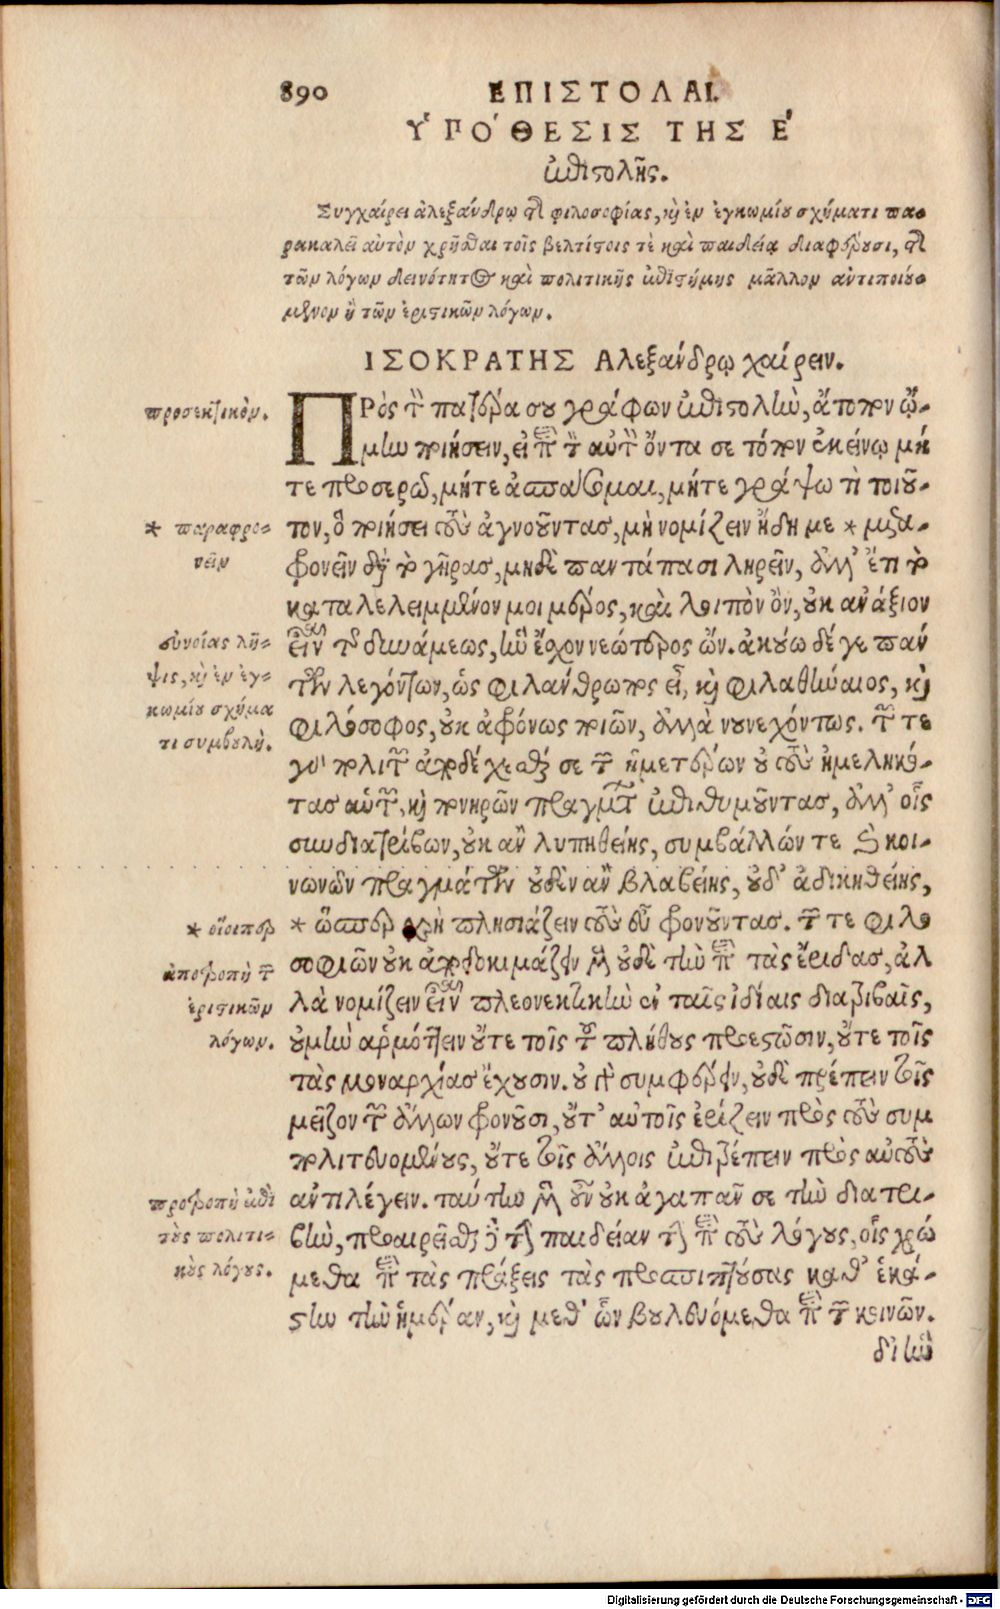 890 ΕΠΙΣΤΟΛΑΙ.
ΥΠΟΘΕΣΙΣ ΤΗΣ Ε'
ἐπιστολῆς.
Συγχαίρει ἀλεξάνδρῳ τῆς φιλοσοφίας, καὶ ἐν ἐγκωμίου σχήματι πα-
ρακαλεῖ αὐτὸν χρῆσθαι τοῖς βελτίστοις τὲ καὶ παιδείᾳ διαφέρουσι, τῆς
τῶν λόγων δεινότητος καὶ πολιτικῆς ἐπιστήμης μᾶλλον ἀντιποιού-
μενον ἢ τῶν ἐριστικῶν λόγων.
ΙΣΟΚΡΑΤΗΣ Αλεξάνδρῳ χαίρειν.
προσεκτικὸν.
ΠΡὸς τὸν πατέρα σου γράφων ἐπιστολὴν, ἄτοπον ᾤ-
μην ποιήσειν, εἰ περὶ τὸν αὐτὸν ὄντα σε τόπον ἐκείνῳ μή
τε προσερῶ, μήτε ἀσπάσομαι, μήτε γράψω τὶ τοιοῦ-
* παραφρο-
νεῖν
τον, ὃ ποιήσει τοὺς ἀγνοοῦντας, μὴ νομίζειν ἤδη με * μετα-
φρονεῖν διὰ τὸ γῆρας, μηδὲ παντάπασι ληρεῖν, ἀλλ' ἔτι τὸ
καταλελειμμένον μοι μέρος, καὶ λοιπὸν ὂν, οὐκ ἀνάξιον
εὐνοίας λῆ-
ψις, καὶ ἐν ἐγ-
κωμίου σχήμα
τι συμβουλὴ.
εἶναι τῆς δυνάμεως, ἣν ἔσχον νεώτερος ὤν. ἀκούω δέ γε πάν
των λεγόντων, ὡς φιλάνθρωπος εἶ, καὶ φιλαθήναιος, καὶ
φιλόσοφος, οὐκ ἀφρόνως ποιῶν, ἀλλὰ νουνεχόντως. τῶν τε
γὰρ πολιτῶν ἀποδέχεσθαί σε τῶν ἡμετέρων οὐ τοὺς ἠμεληκό-
τας αὑτῶν, καὶ πονηρῶν πραγμάτων ἐπιθυμοῦντας, ἀλλ' οἷς
συνδιατρίβων, οὐκ ἂν λυπηθείης, συμβάλλών τε καὶ κοι-
νωνῶν πραγμάτων οὐδὲν ἂν βλαβείης, οὐδ' ἀδικηθείης,
* οἵοισπερ
* ὥσπερ χρὴ πλησιάζειν τοὺς εὖ φρονοῦντας. τῶν τε φιλο
ἀποτροπὴ τῶν
ἐριστικῶν
λόγων.
σοφιῶν οὐκ ἀποδοκιμάζειν μὲν οὐδὲ τὴν περὶ τὰς ἔριδας, ἀλ
λὰ νομίζειν εἶναι πλεονεκτικὴν ἐν ταῖς ἰδίαις διατριβαῖς,
οὐ μὴν ἁρμόττειν οὔτε τοῖς τοῦ πλήθους προεστῶσιν, οὔτε τοῖς
τὰς μοναρχίας ἔχουσιν. οὐ γὰρ συμφέρειν, οὐδὲ πρέπειν τοῖς
μεῖζον τῶν ἄλλων φρονοῦσι, οὔτ' αὐτοῖς ἐρίζειν πρὸς τοὺς συμ
πολιτευομένους, οὔτε τοῖς ἄλλοις ἐπιτρέπειν πρὸς αὐτοὺς
προτροπὴ ἐπὶ
τοὺς πολιτι-
κοὺς λόγους.
ἀντιλέγειν. ταύτην μὲν οὖν οὐκ ἀγαπᾶν σε τὴν διατρι-
βὴν, προαιρεῖσθαι δὲ τὴν παιδείαν τὴν περὶ τοὺς λόγους, οἷς χρώ
μεθα περὶ τὰς πράξεις τὰς προσπιπτούσας καθ' ἑκά-
στην τὴν ἡμέραν, καὶ μεθ' ὧν βουλευόμεθα περὶ τῶν κοινῶν.
δι' ἣν
Digitalisierung gefördert durch die Deutsche Forschungsgemeinschaft - DFG